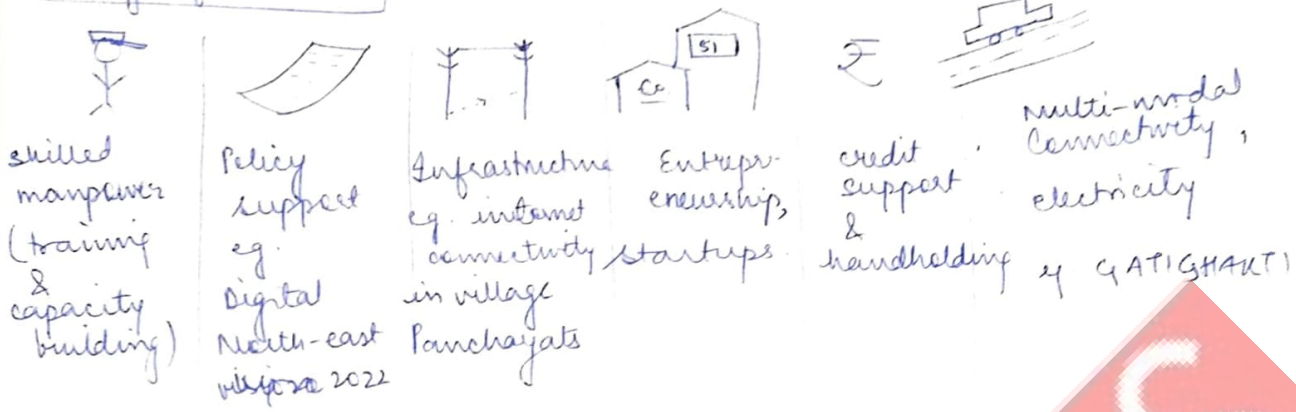 51
Co
₹
skilled
manpower
(training
&
capacity
building)
Policy
support
eg.
Digital
North-east
vision 2022
Infrastructure
eg. internet
connectivity
in village
Panchayats
Entrepr-
eneurship,
startups.
credit
support
&
handholding
Multi-modal
Connectivity,
electricity
eg GATISHAKTI